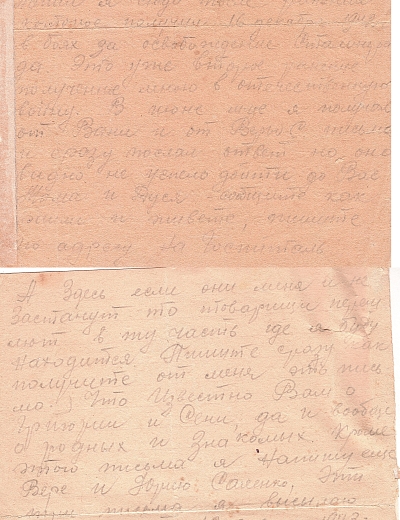 которое получил 16
в боях за освобождение Сталингра
да. Это уже второе ранение
полученное мною в отечественную
войну. В июне м-це я получил
от Вани и от Веры С письма
и сразу послал ответ но оно
видно не успело дойти до Вас
Дуся сообщите как
жили и живете, пишите
по адресу на Госпиталь
А Здесь если они меня и не
Застанут то товарищи переш
лют в ту часть где я буду
находится Пишите сразу как
получите от меня это пись
мо, Что Известно Вам о
Григории и Сени, да и вообще
о родных и знакомых. Кроме
этого письма я Напишу еще
Вере и Саленко, Эти
три письма я высылаю